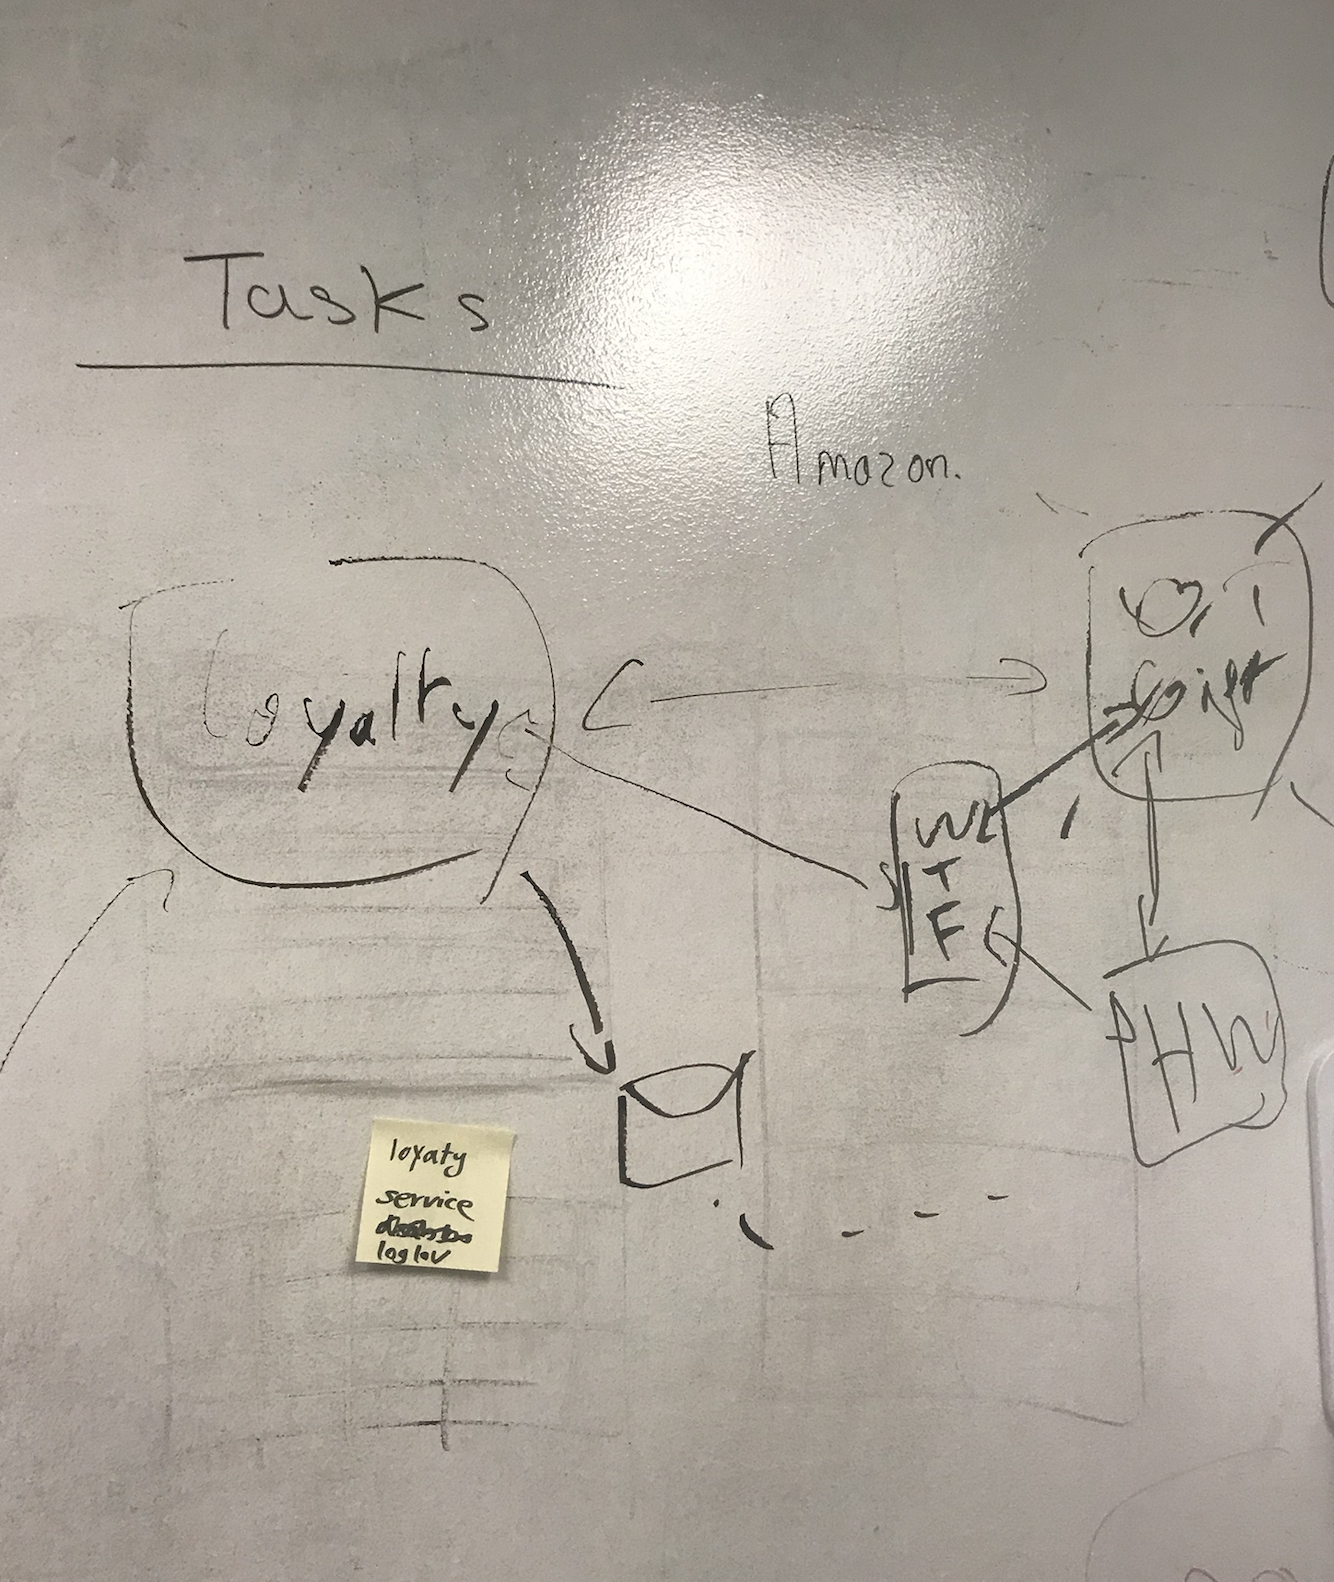 Tasks
Amazon.
loyalty
W
T
F
PHW
loyaty
service